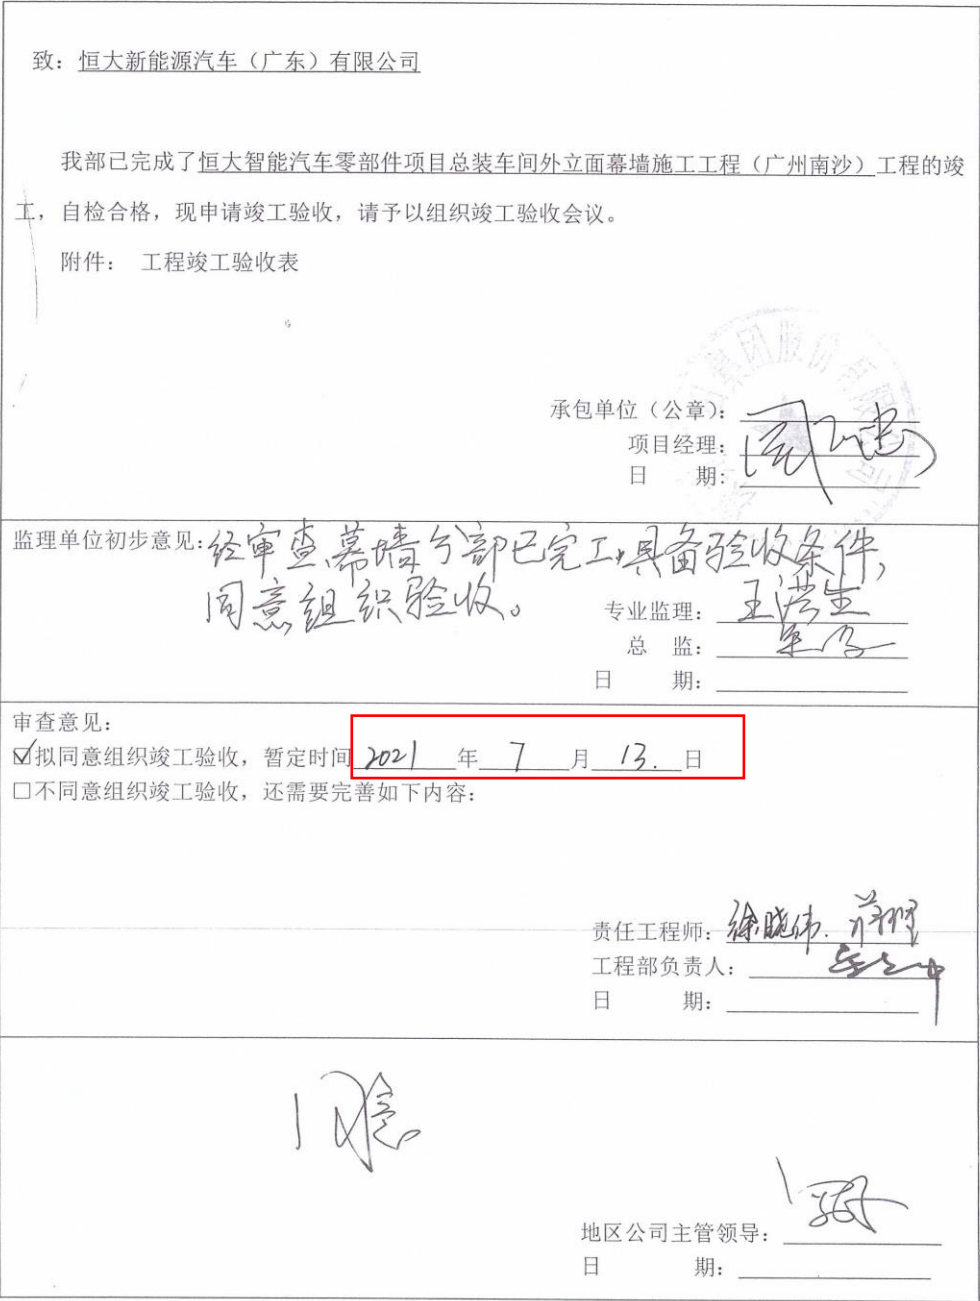 致：恒大新能源汽车（广东）有限公司
我部已完成了恒大智能汽车零部件项目总装车间外立面幕墙施工工程（广州南沙）工程的竣
工，自检合格，现申请竣工验收，请予以组织竣工验收会议。
附件： 工程竣工验收表
集团股份有限公司
承包单位（公章）：
项目经理：
日 期：
监理单位初步意见：经审查，幕墙分部已完工，具备验收条件，
同意组织验收。
专业监理：王洪生
总 监：
日 期：
审查意见：
☑拟同意组织竣工验收，暂定时间 2021 年 7 月 13. 日
☐不同意组织竣工验收，还需要完善如下内容：
责任工程师：徐晓伟.
工程部负责人：
日 期：
同意
地区公司主管领导：
日 期：